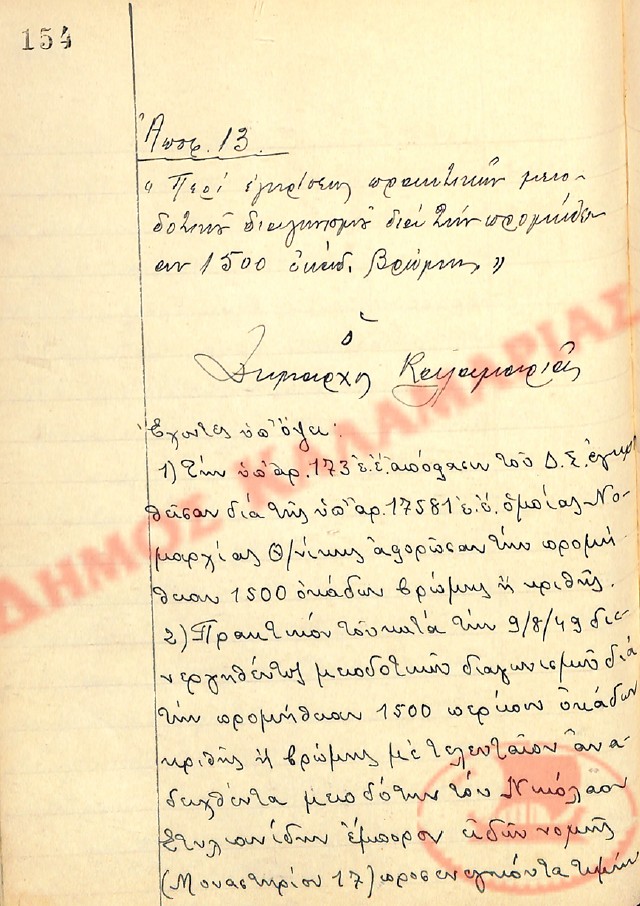 154
Ἀποφ. 13.
« Περί ἐγκρίσεως πρακτικῶν μειο-
δοτικοῦ διαγωνισμοῦ διά τήν προμήθει-
αν 1500 ὀκάδ. βρώμης »
Ὁ
Δήμαρχος Καλαμαριᾶς
Ἔχοντες ὑπ' ὄψει:
1) Τήν ὑπ' ἀρ. 173 ἐ.ἔ. ἀπόφασιν τοῦ Δ.Σ. ἐγκρι
θεῖσαν διά τῆς ὑπ' ἀρ. 17581 ἐ.ἔ. ὁμοίας Νο-
μαρχίας Θ/νίκης ἀφορῶσαν τήν προμή-
θειαν 1500 ὀκάδων βρώμης ἤ κριθῆς.
2) Πρακτικόν τοῦ κατά τήν 9/8/49 διε-
νεργηθέντος μειοδοτικοῦ διαγωνισμοῦ διά
τήν προμήθειαν 1500 περίπου ὀκάδων
κριθῆς ἤ βρώμης μέ τελευταῖον ἀνα-
δειχθέντα μειοδότην τόν Νικόλαον
Στυλιανίδην ἔμπορον εἰδῶν νομῆς
(Μοναστηρίου 17) προσενεγκόντα τιμήν
ΔΗΜΟΣ ΚΑΛΑΜΑΡΙΑΣ